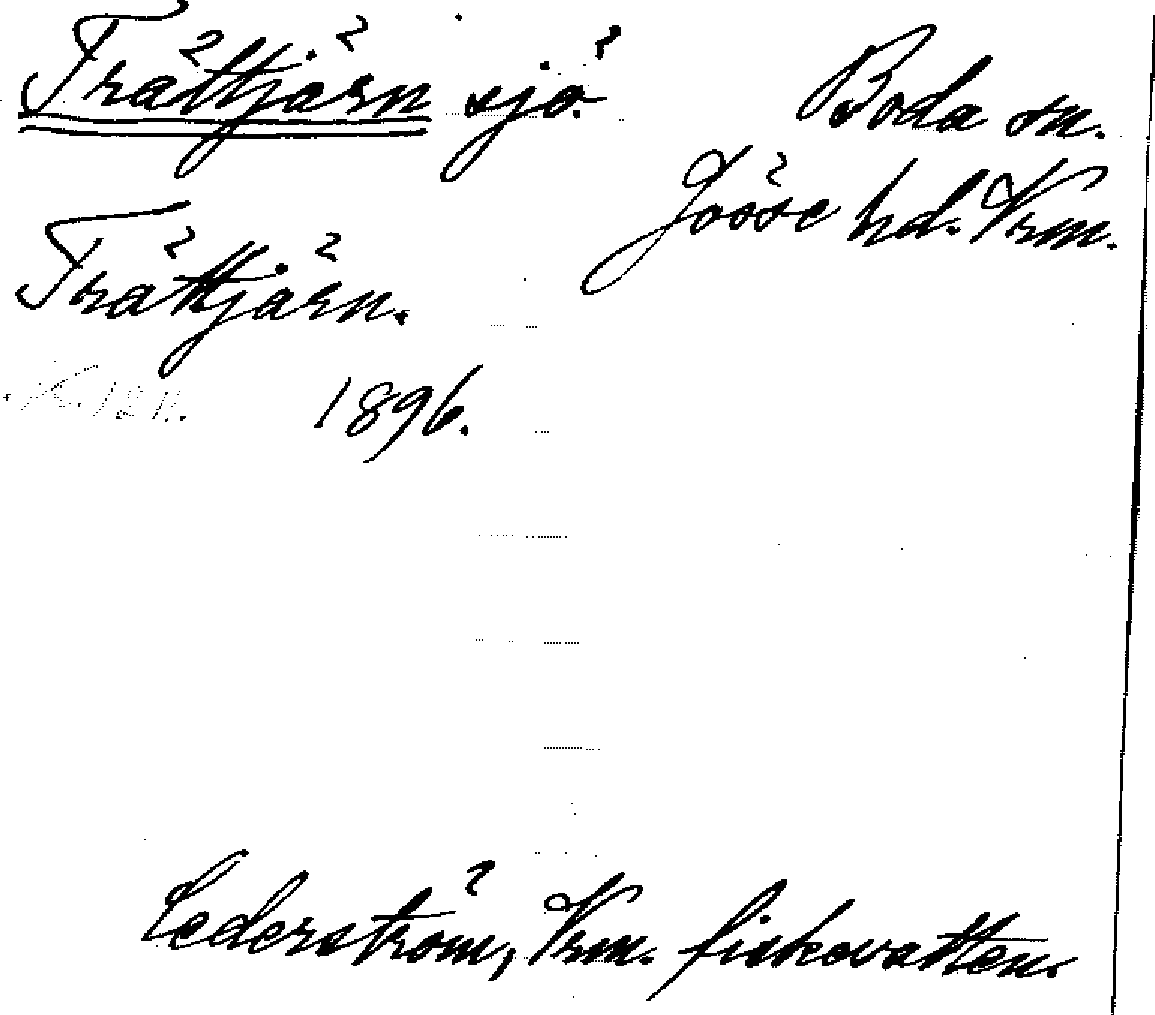 Trättjärn sjö. Boda sn.
Jösse hd. Vrm.
Trättjärn.
1896.
Cederström, Vrm. fiskevatten.